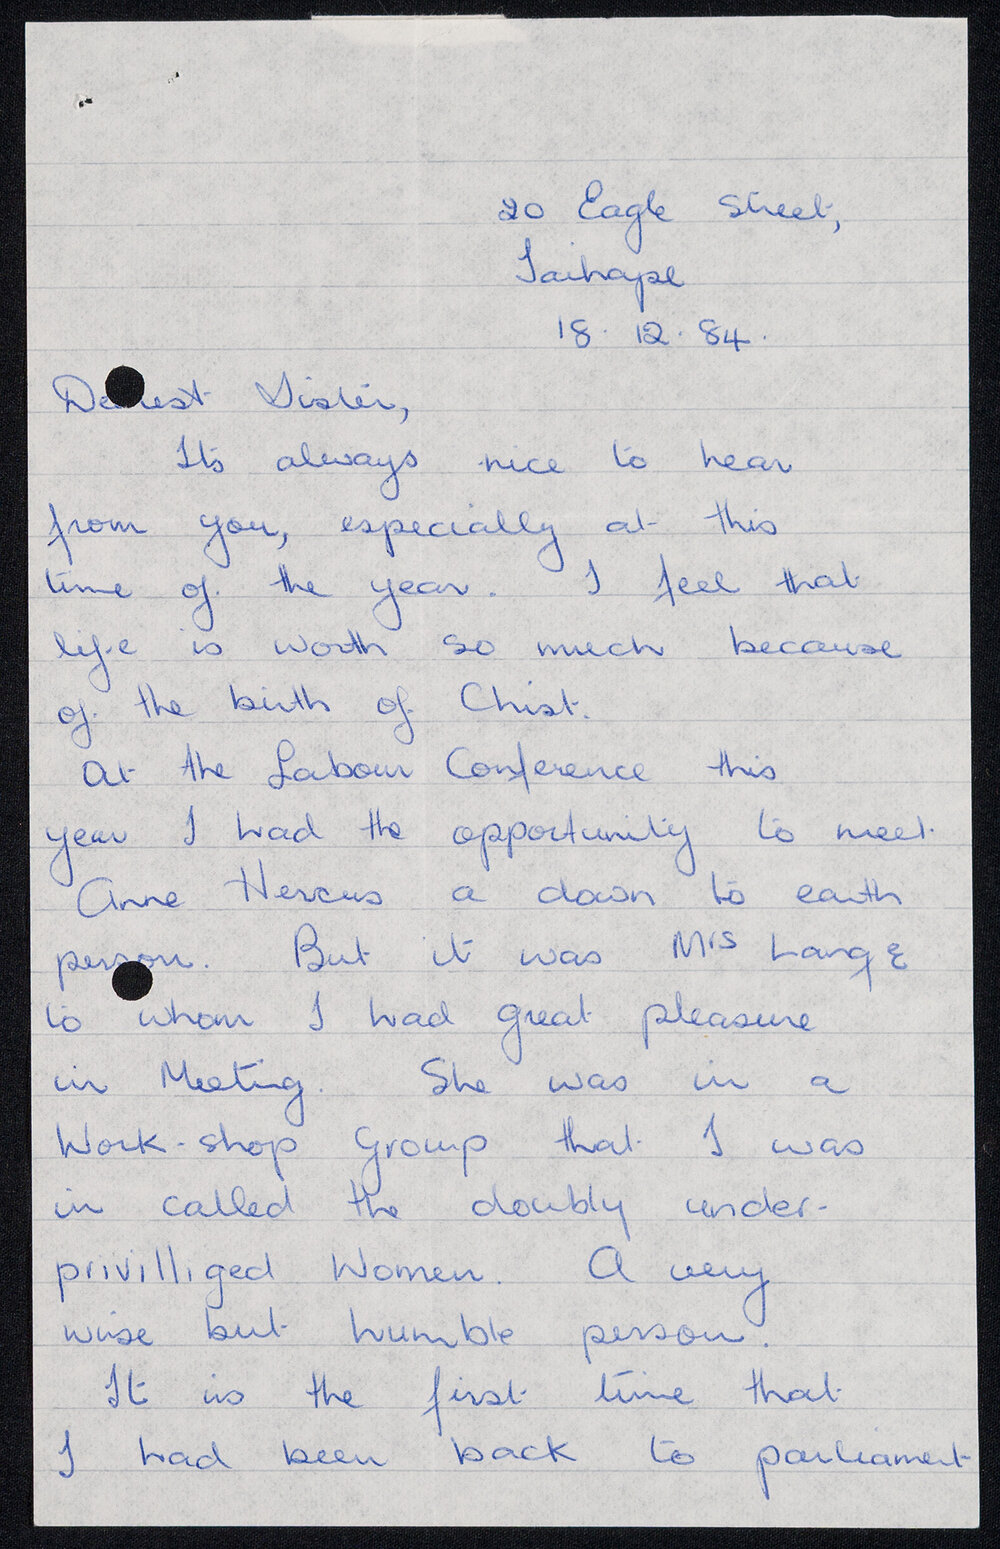 20 Eagle Street,
Taihape
18. 12. 84.
Dearest Sister,
Its always nice to hear
from you, especially at this
time of the year. I feel that
life is worth so much because
of the birth of Christ.
At the Labour Conference this
year I had the opportunity to meet
Anne Hercus a down to earth
person. But it was Mrs Lange
to whom I had great pleasure
in Meeting. She was in a
Work-shop Group that I was
in called the doubly under-
privilliged Women. A very
wise but humble person.
It is the first time that
I had been back to parliament